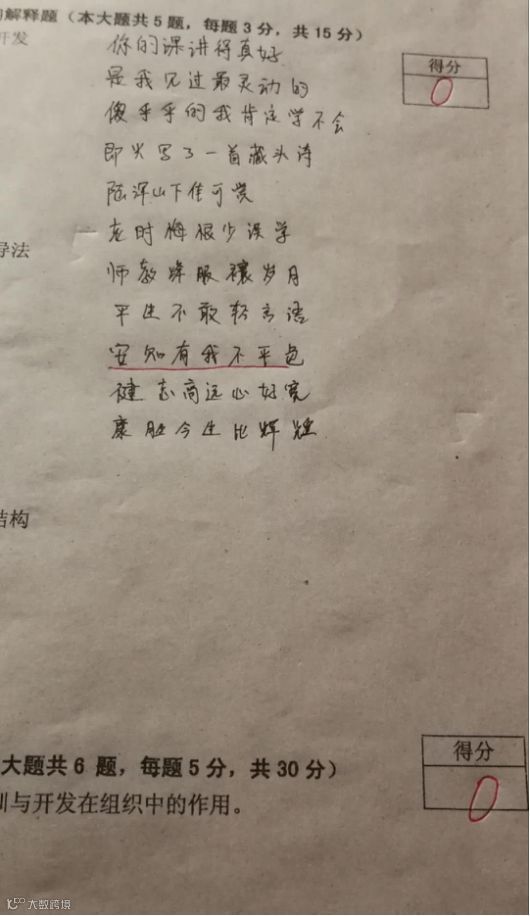 解释题（本大题共5题，每题3分，共15分）
开发
得分
0
你的课讲得真好
是我见过最灵动的
傻乎乎的我肯定学不会
即兴写了一首藏头诗
陆深山下佳可赏
老时悔恨少误学
师教 服 岁月
平生不敢轻言语
安知有我不平色
健志高远心好宽
康胜今生比辉煌
导法
结构
大题共6题，每题5分，共30分）
得分
0
训与开发在组织中的作用。
大数跨境